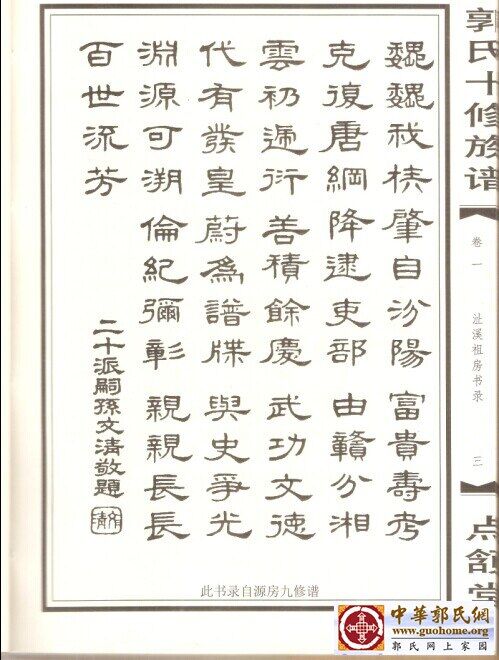 郭氏十修族谱
卷一
沚溪祖房书录
三
点颔堂
巍巍我族肇自汾陽富貴壽考
克復唐綱降逮吏部由贛分湘
雲礽遞衍善積餘慶武功文德
代有發皇蔚為譜牒與史爭光
淵源可溯倫紀彌彰親親長長
百世流芳
二十派嗣孫文清敬題
文清
此书录自源房九修谱
中華郭氏網
www.guohome.org
郭氏网上家园